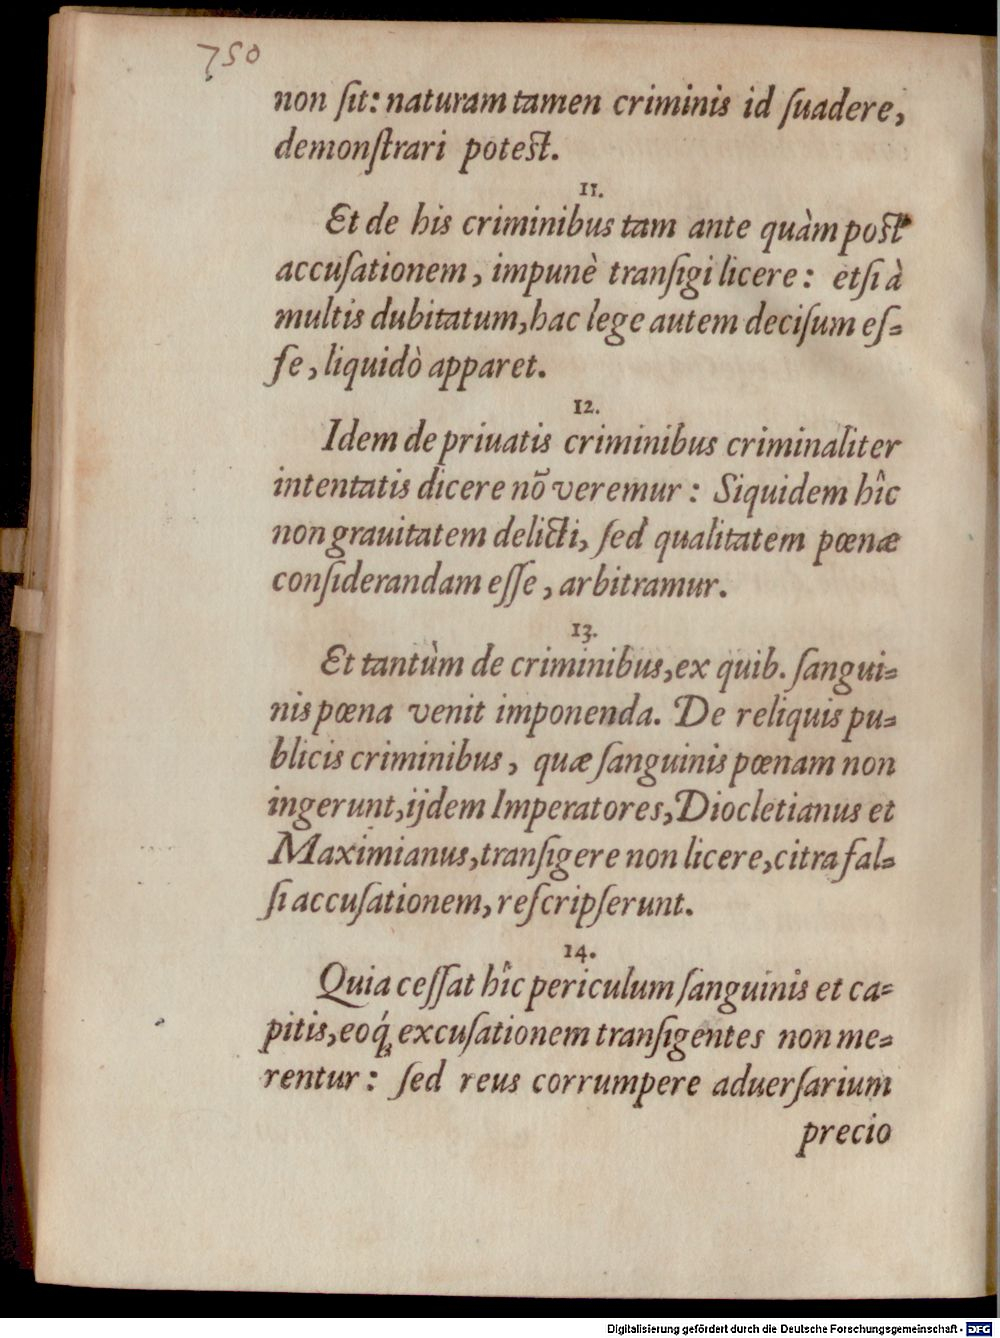 750
non ſit: naturam tamen criminis id ſuadere,
demonſtrari poteſt.
11.
Et de his criminibus tam ante quàm poſt
accuſationem, impunè tranſigi licere: etſi à
multis dubitatum, hac lege autem deciſum eſ-
ſe, liquidò apparet.
12.
Idem de priuatis criminibus criminaliter
intentatis dicere nō veremur: Siquidem hîc
non grauitatem delicti, ſed qualitatem pœnæ
conſiderandam eſſe, arbitramur.
13.
Et tantùm de criminibus, ex quib. ſangui-
nis pœna venit imponenda. De reliquis pu-
blicis criminibus, quæ ſanguinis pœnam non
ingerunt, ijdem Imperatores, Diocletianus et
Maximianus, tranſigere non licere, citra fal-
ſi accuſationem, reſcripſerunt.
14.
Quia ceſſat hîc periculum ſanguinis et ca-
pitis, eoq́ꝫ excuſationem tranſigentes non me-
rentur: ſed reus corrumpere aduerſarium
precio
Digitalisierung gefördert durch die Deutsche Forschungsgemeinschaft - DFG